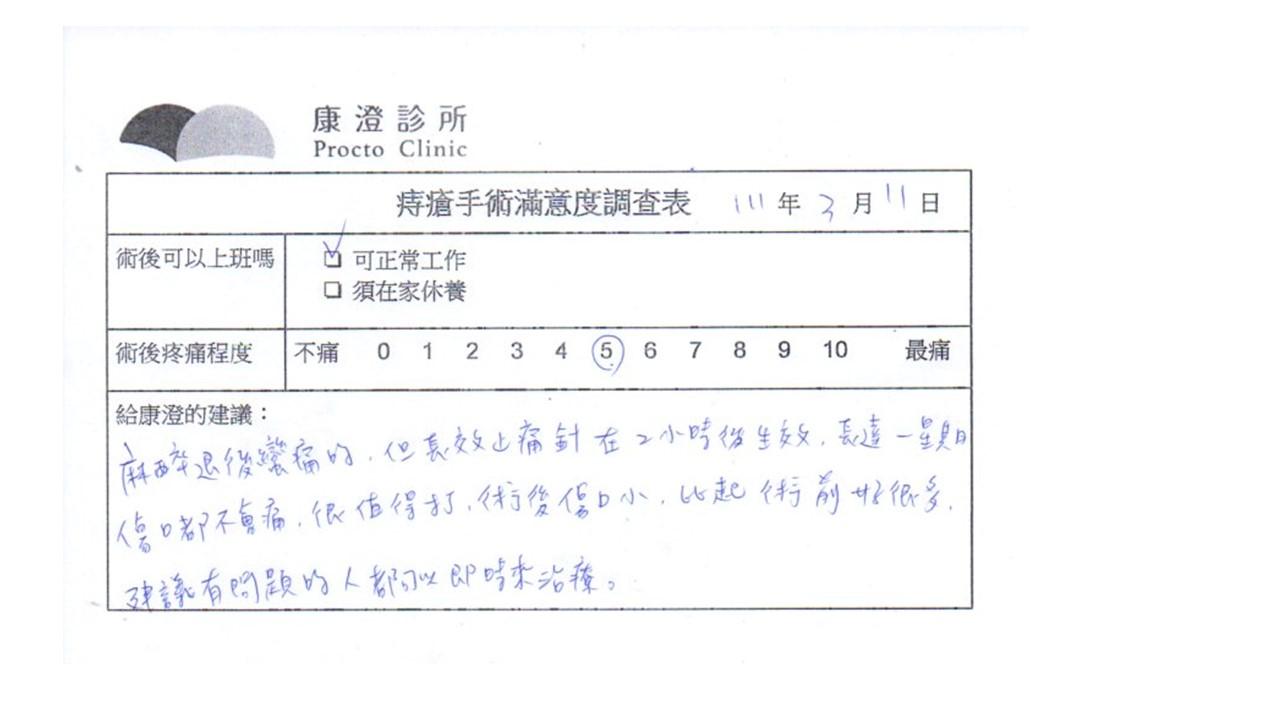 康澄診所
Procto Clinic
痔瘡手術滿意度調查表 111年3月11日
術後可以上班嗎
可正常工作
須在家休養
術後疼痛程度 不痛 0 1 2 3 4 5 6 7 8 9 10 最痛
給康澄的建議：
麻醉退後蠻痛的，但長效止痛針在2小時後生效，長達一星期
傷口都不會痛，很值得打，術後傷口小，比起術前好很多，
建議有問題的人都可以即時來治療。